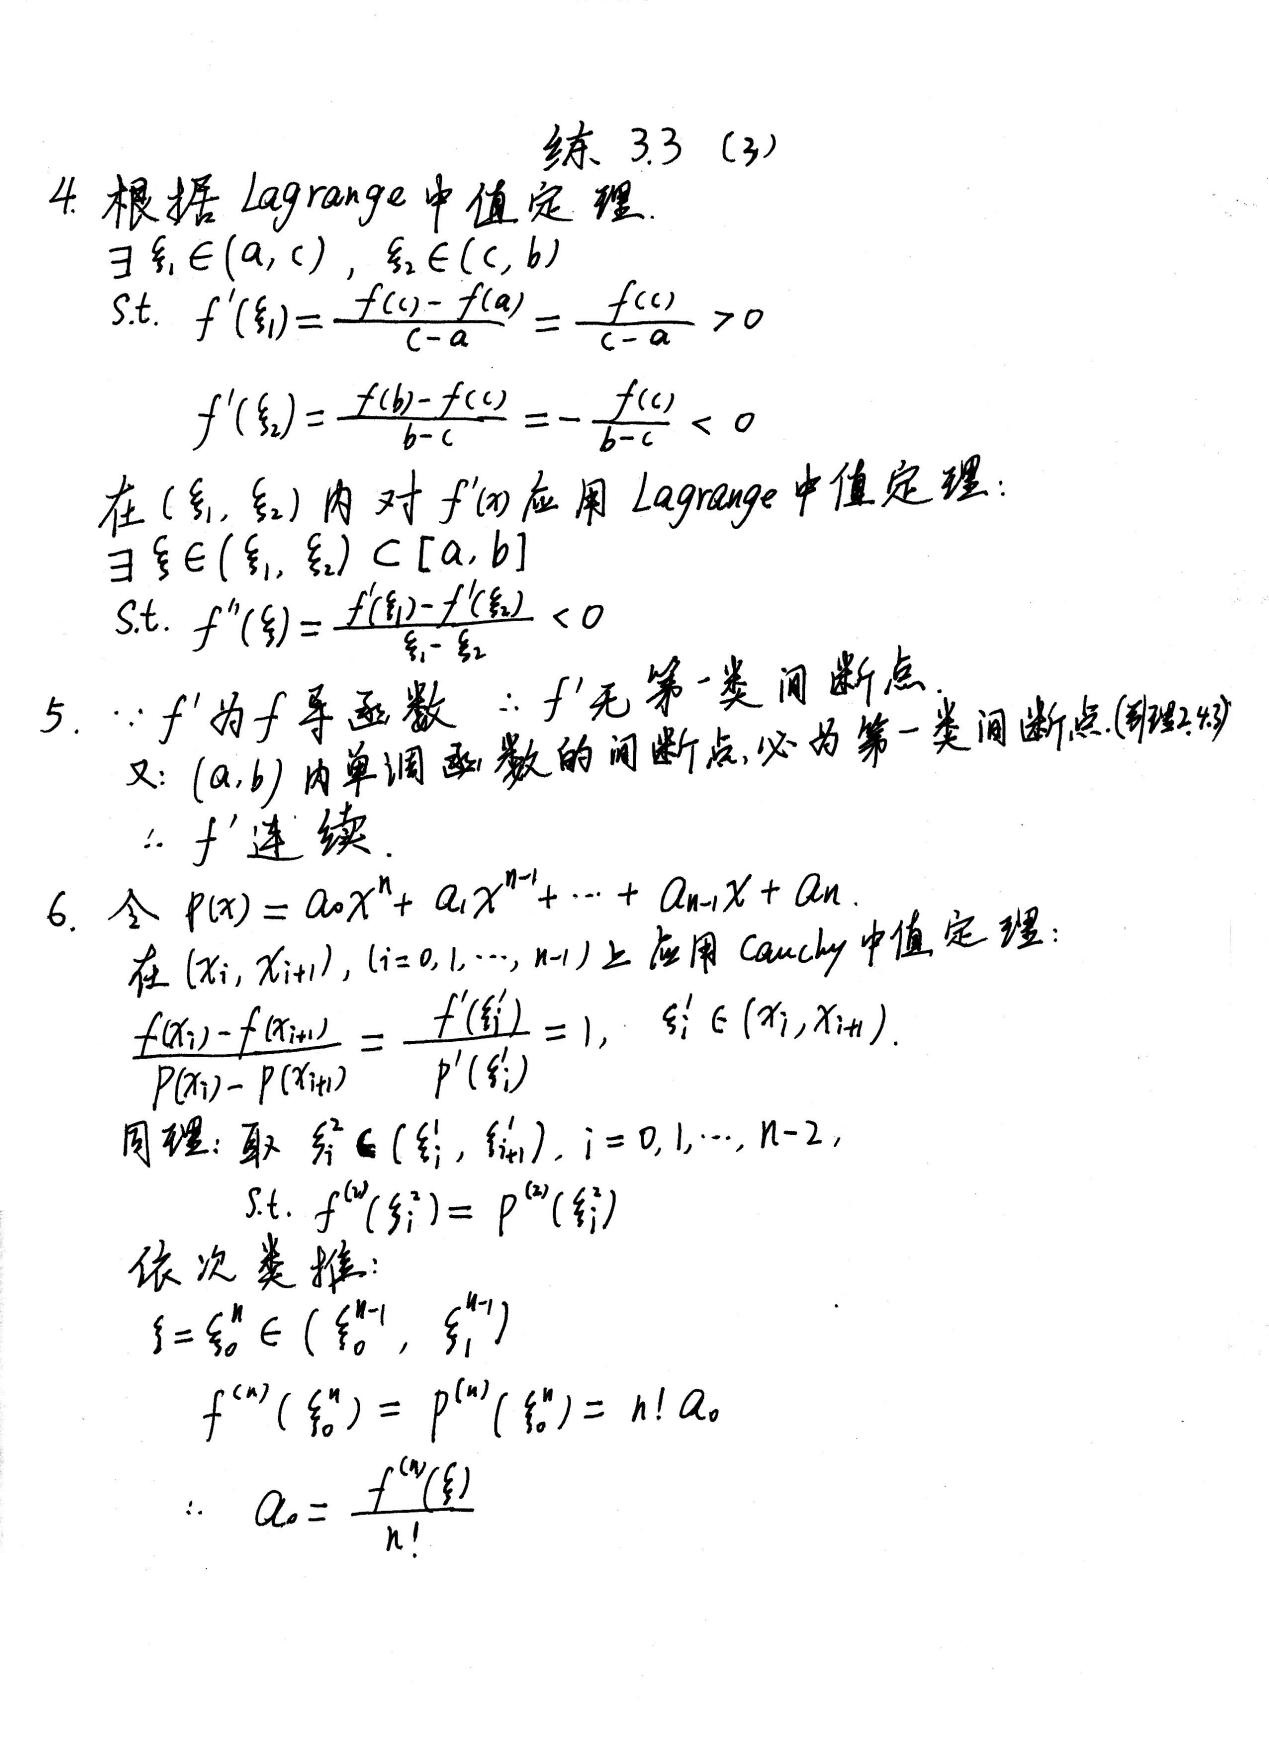 练 3.3 (3)
4. 根据 Lagrange 中值定理.
∃ ξ₁∈(a, c), ξ₂∈(c, b)
s.t. f'(ξ₁) = (f(c) - f(a))/(c - a) = f(c)/(c - a) > 0
f'(ξ₂) = (f(b) - f(c))/(b - c) = - f(c)/(b - c) < 0
在 (ξ₁, ξ₂) 内 对 f'(x) 应用 Lagrange 中值定理:
∃ ξ∈(ξ₁, ξ₂) ⊂ [a, b]
s.t. f''(ξ) = (f'(ξ₁) - f'(ξ₂))/(ξ₁ - ξ₂) < 0
5. ∵ f' 为 f 导函数 ∴ f' 无第一类间断点.
又: (a, b) 内单调函数的间断点, 必为第一类间断点. (引理2.4.3)
∴ f' 连续.
6. 令 P(x) = a₀xⁿ + a₁xⁿ⁻¹ + ··· + aₙ₋₁x + aₙ.
在 (xᵢ, xᵢ₊₁), (i=0, 1, ···, n-1) 上应用 Cauchy 中值定理:
(f(xᵢ) - f(xᵢ₊₁))/(P(xᵢ) - P(xᵢ₊₁)) = f'(ξᵢ¹)/P'(ξᵢ¹) = 1, ξᵢ¹ ∈ (xᵢ, xᵢ₊₁).
同理: 取 ξᵢ² ∈ (ξᵢ¹, ξᵢ₊₁¹), i = 0, 1, ···, n-2,
s.t. f⁽²⁾(ξᵢ²) = P⁽²⁾(ξᵢ²)
依次类推:
ξ = ξ₀ⁿ ∈ (ξ₀ⁿ⁻¹, ξ₁ⁿ⁻¹)
f⁽ⁿ⁾(ξ₀ⁿ) = P⁽ⁿ⁾(ξ₀ⁿ) = n! a₀
∴ a₀ = f⁽ⁿ⁾(ξ)/n!